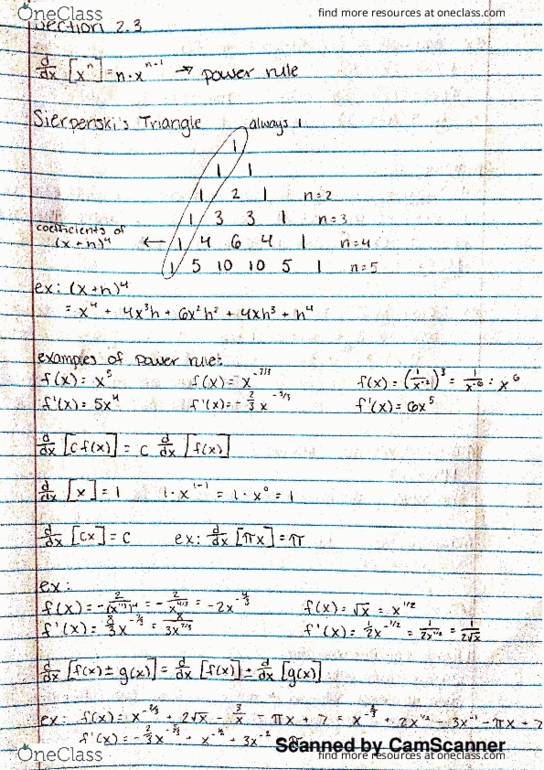 OneClass
find more resources at oneclass.com
Section 2.3
d/dx [xⁿ] = n·xⁿ⁻¹ → power rule
Sierpenski's Triangle always 1
1
1 1
1 2 1 n=2
1 3 3 1 n=3
coefficients of (x+h)⁴ ← 1 4 6 4 1 n=4
1 5 10 10 5 1 n=5
ex: (x+h)⁴
= x⁴ + 4x³h + 6x²h² + 4xh³ + h⁴
examples of power rule:
f(x) = x⁵ f(x) = x^(-2/3) f(x) = (1/x⁻²)³ = 1/x⁻⁶ = x⁶
f'(x) = 5x⁴ f'(x) = -2/3 x^(-5/3) f'(x) = 6x⁵
d/dx [cf(x)] = c d/dx [f(x)]
d/dx [x] = 1 1·x¹⁻¹ = 1·x⁰ = 1
d/dx [cx] = c ex: d/dx [πx] = π
ex:
f(x) = -2/(x^(1/3))⁴ = -2/x^(4/3) = -2x^(-4/3) f(x) = √x = x^(1/2)
f'(x) = 8/3 x^(-7/3) = 8/3x^(7/3) f'(x) = 1/2 x^(-1/2) = 1/2x^(1/2) = 1/2√x
d/dx [f(x) ± g(x)] = d/dx [f(x)] ± d/dx [g(x)]
ex: f(x) = x^(-2/3) + 2√x - 3/x - πx + 7 = x^(-2/3) + 2x^(1/2) - 3x⁻¹ - πx + 7
f'(x) = -2/3 x^(-5/3) + x^(-1/2) + 3x⁻²
Scanned by CamScanner
OneClass
find more resources at oneclass.com